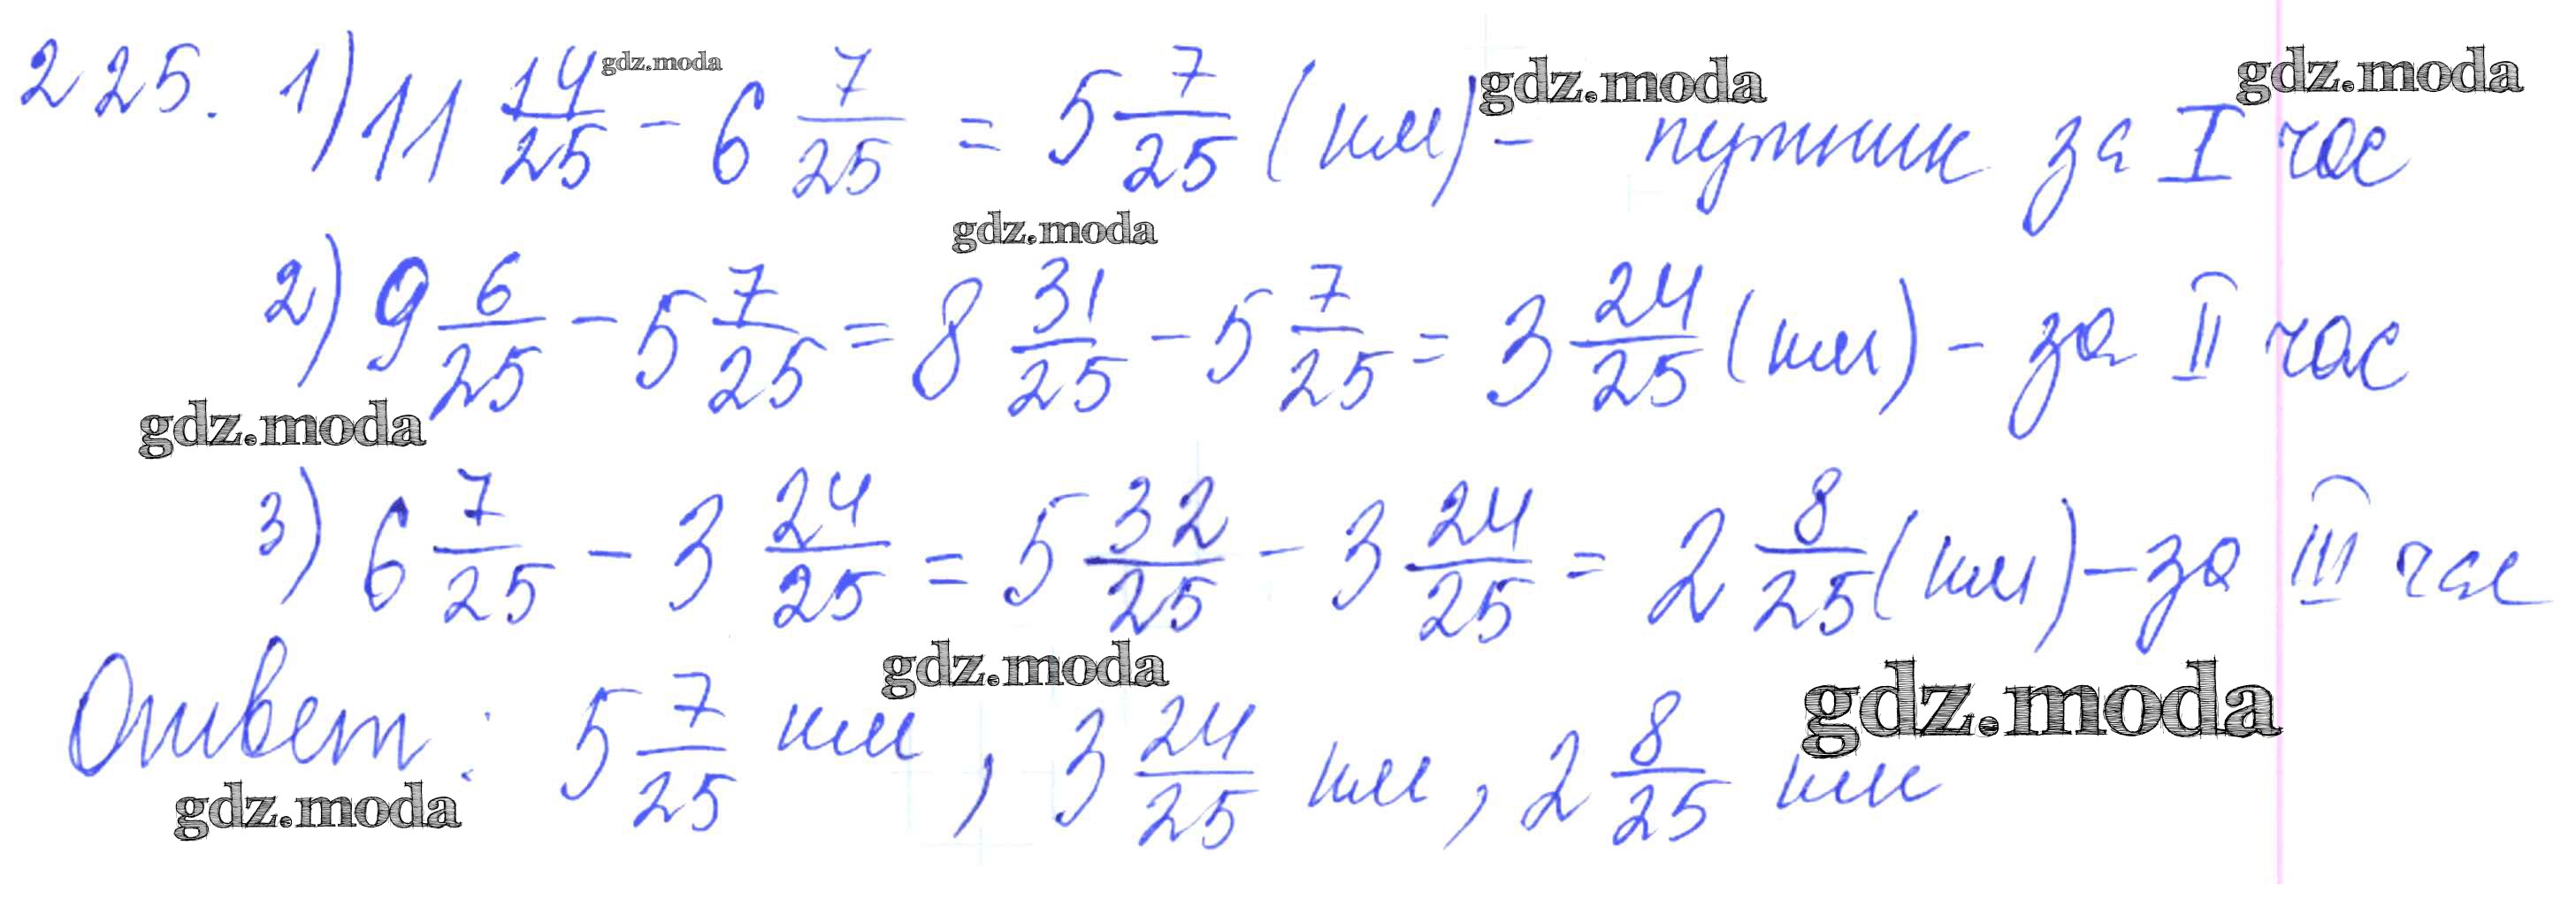 225. 1) 11 14/25 - 6 7/25 = 5 7/25 (км) - путник за I час
2) 9 6/25 - 5 7/25 = 8 31/25 - 5 7/25 = 3 24/25 (км) - за II час
3) 6 7/25 - 3 24/25 = 5 32/25 - 3 24/25 = 2 8/25 (км) - за III час
Ответ: 5 7/25 км, 3 24/25 км, 2 8/25 км
gdz.moda
gdz.moda
gdz.moda
gdz.moda
gdz.moda
gdz.moda
gdz.moda
gdz.moda